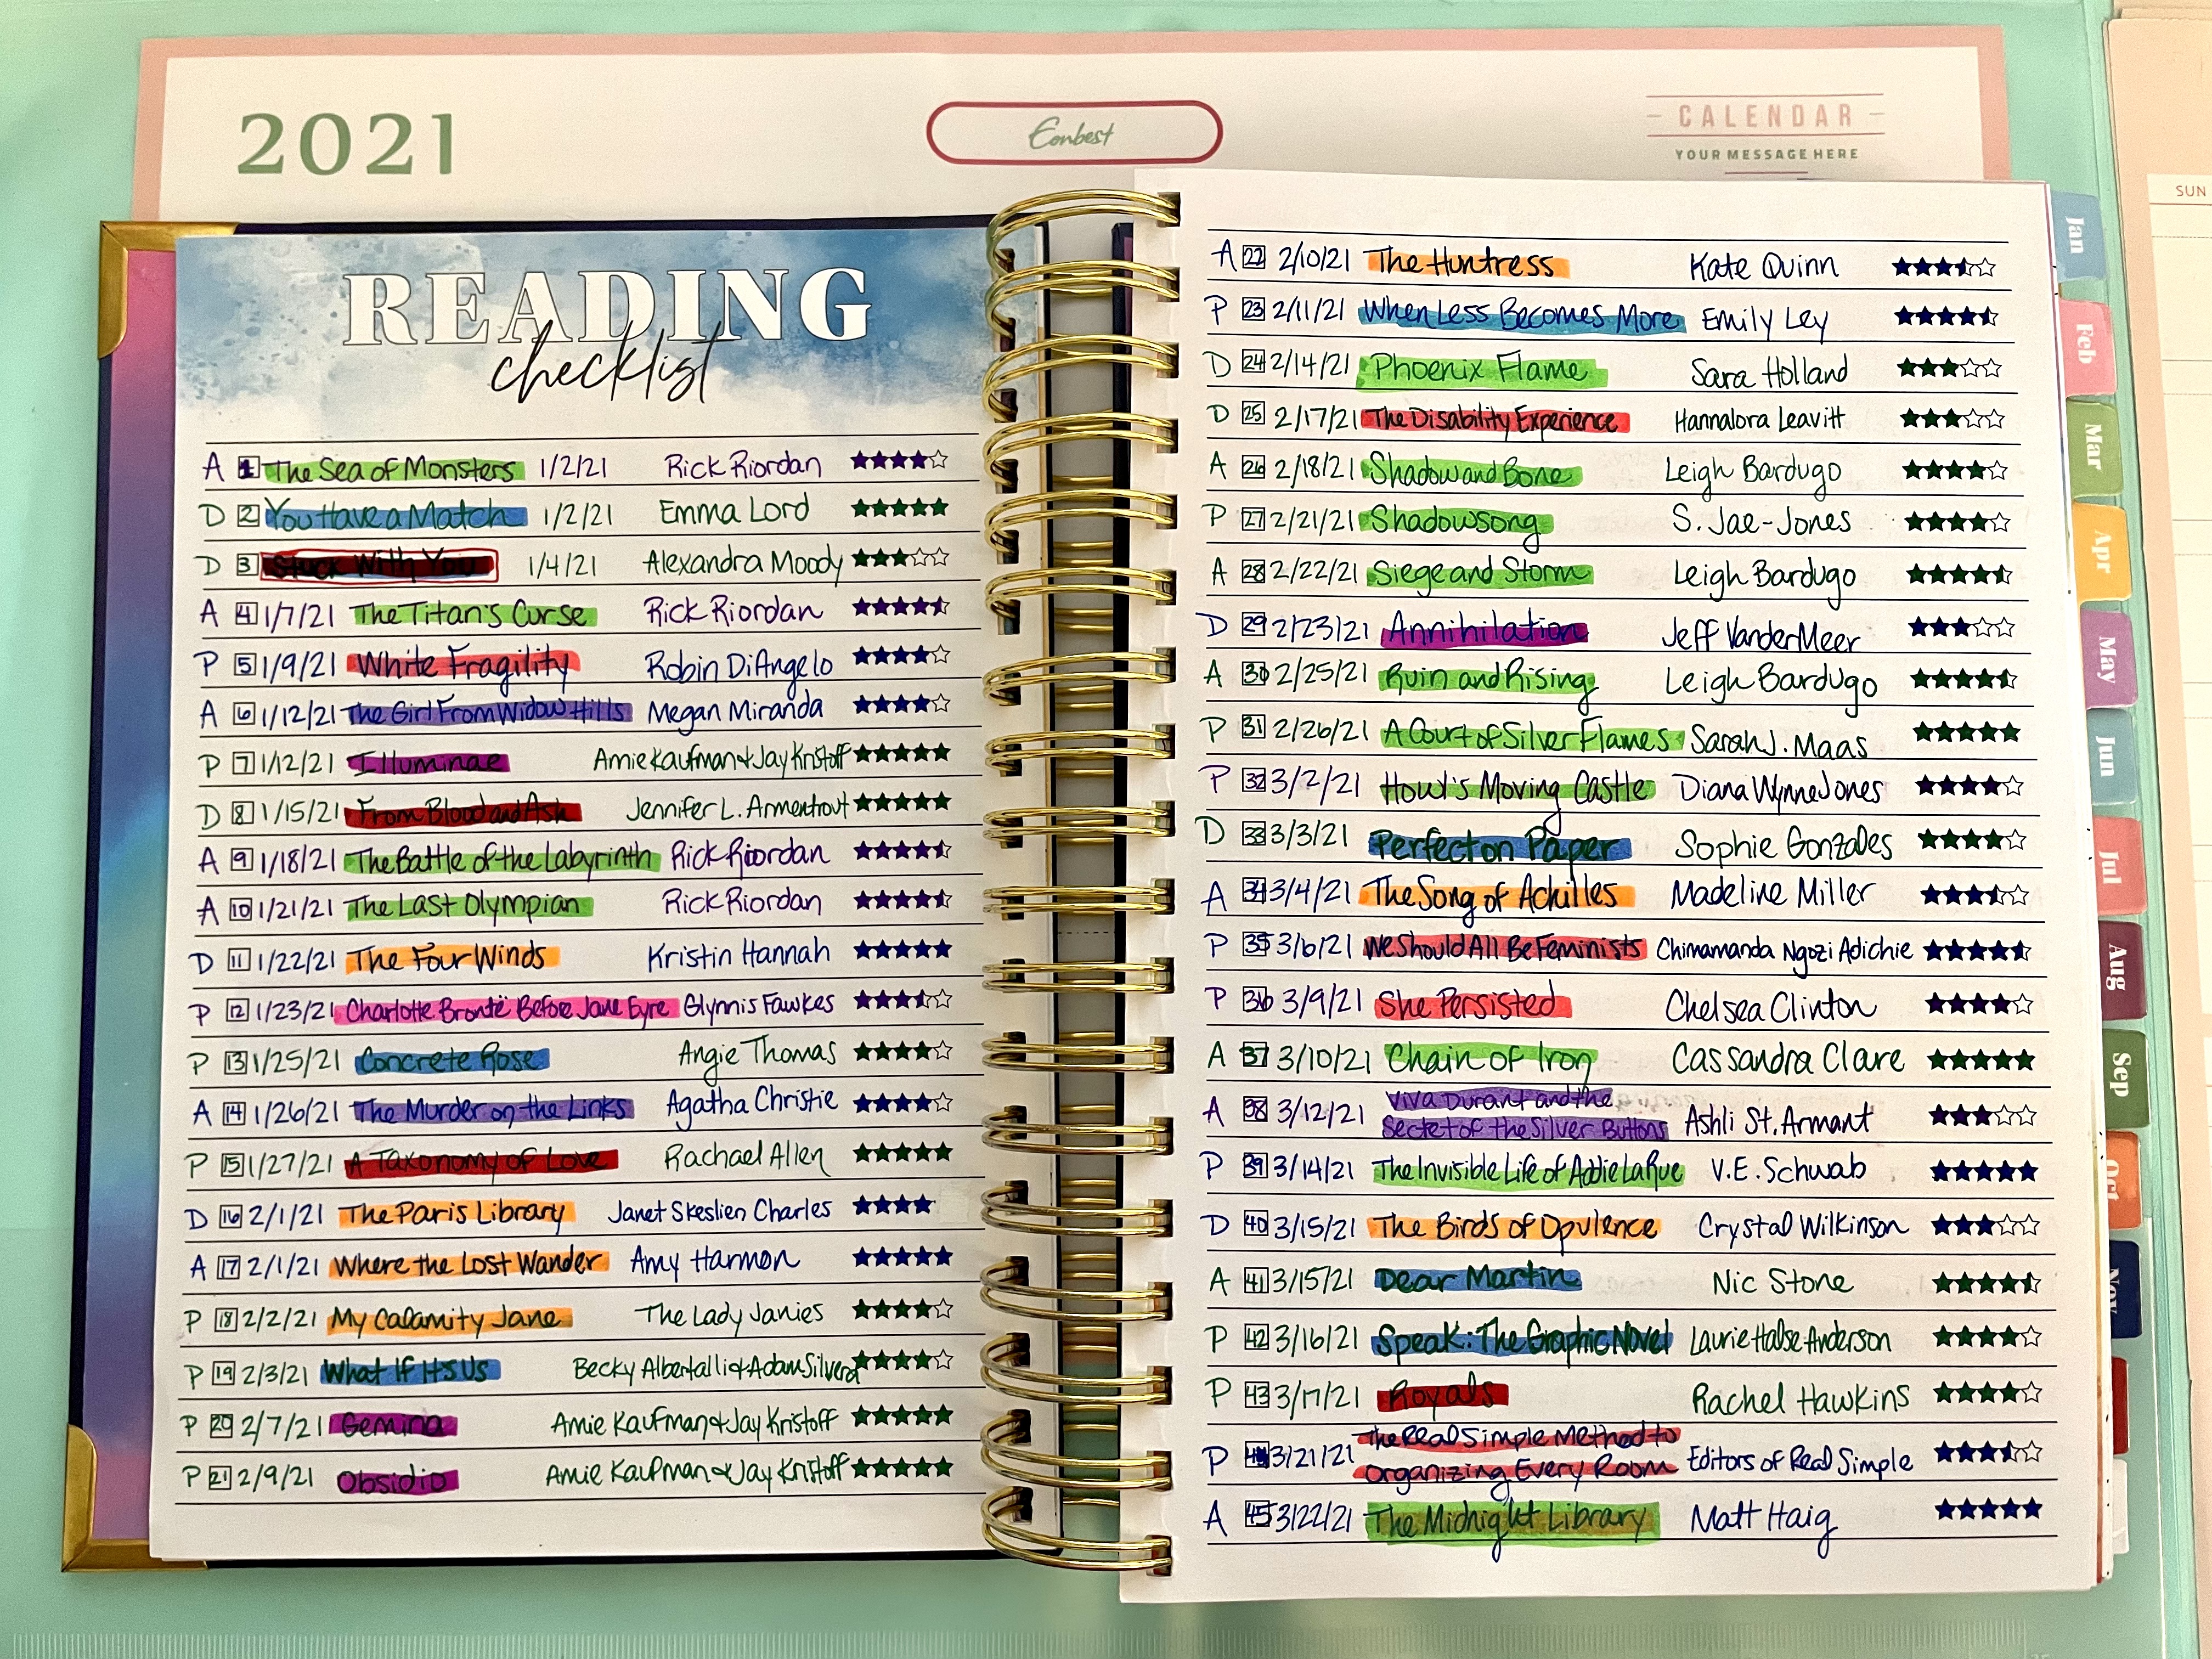 2021
Eonbest
CALENDAR
YOUR MESSAGE HERE
SUN
READING
checklist
A 1 The Sea of Monsters 1/2/21 Rick Riordan ★★★★☆
D 2 You Have a Match 1/2/21 Emma Lord ★★★★★
D 3 Stuck With You 1/4/21 Alexandra Moody ★★★☆☆
A 4 1/7/21 The Titan's Curse Rick Riordan ★★★★⯪
P 5 1/9/21 White Fragility Robin DiAngelo ★★★★☆
A 6 1/12/21 The Girl From Widow Hills Megan Miranda ★★★★☆
P 7 1/12/21 Illuminae Amie Kaufman & Jay Kristoff ★★★★★
D 8 1/15/21 From Blood and Ash Jennifer L. Armentrout ★★★★★
A 9 1/18/21 The Battle of the Labyrinth Rick Riordan ★★★★⯪
A 10 1/21/21 The Last Olympian Rick Riordan ★★★★⯪
D 11 1/22/21 The Four Winds Kristin Hannah ★★★★★
P 12 1/23/21 Charlotte Brontë Before Jane Eyre Glynnis Fawkes ★★★⯪☆
P 13 1/25/21 Concrete Rose Angie Thomas ★★★★☆
A 14 1/26/21 The Murder on the Links Agatha Christie ★★★★☆
P 15 1/27/21 A Taxonomy of Love Rachael Allen ★★★★★
D 16 2/1/21 The Paris Library Janet Skeslien Charles ★★★★
A 17 2/1/21 Where the Lost Wander Amy Harmon ★★★★★
P 18 2/2/21 My Calamity Jane The Lady Janies ★★★★☆
P 19 2/3/21 What If It's Us Becky Albertalli & Adam Silvera ★★★★☆
P 20 2/7/21 Gemina Amie Kaufman & Jay Kristoff ★★★★★
P 21 2/9/21 Obsidio Amie Kaufman & Jay Kristoff ★★★★★
A 22 2/10/21 The Huntress Kate Quinn ★★★⯪☆
P 23 2/11/21 When Less Becomes More Emily Ley ★★★★⯪
D 24 2/14/21 Phoenix Flame Sara Holland ★★★☆☆
D 25 2/17/21 The Disability Experience Hannalora Leavitt ★★★☆☆
A 26 2/18/21 Shadow and Bone Leigh Bardugo ★★★★☆
P 27 2/21/21 Shadowsong S. Jae-Jones ★★★★☆
A 28 2/22/21 Siege and Storm Leigh Bardugo ★★★★⯪
D 29 2/23/21 Annihilation Jeff VanderMeer ★★★☆☆
A 30 2/25/21 Ruin and Rising Leigh Bardugo ★★★★⯪
P 31 2/26/21 A Court of Silver Flames Sarah J. Maas ★★★★★
P 32 3/2/21 Howl's Moving Castle Diana Wynne Jones ★★★★☆
D 33 3/3/21 Perfect on Paper Sophie Gonzales ★★★★☆
A 34 3/4/21 The Song of Achilles Madeline Miller ★★★⯪☆
P 35 3/6/21 We Should All Be Feminists Chimamanda Ngozi Adichie ★★★★⯪
P 36 3/9/21 She Persisted Chelsea Clinton ★★★★☆
A 37 3/10/21 Chain of Iron Cassandra Clare ★★★★★
A 38 3/12/21 Viva Durant and the
Secret of the Silver Buttons Ashli St. Armant ★★★☆☆
P 39 3/14/21 The Invisible Life of Addie LaRue V.E. Schwab ★★★★★
D 40 3/15/21 The Birds of Opulence Crystal Wilkinson ★★★☆☆
A 41 3/15/21 Dear Martin Nic Stone ★★★★⯪
P 42 3/16/21 Speak: The Graphic Novel Laurie Halse Anderson ★★★★☆
P 43 3/17/21 Royals Rachel Hawkins ★★★★☆
P 44 3/21/21 The Real Simple Method to
Organizing Every Room Editors of Real Simple ★★★⯪☆
A 45 3/22/21 The Midnight Library Matt Haig ★★★★★
Jan
Feb
Mar
Apr
May
Jun
Jul
Aug
Sep
Oct
Nov